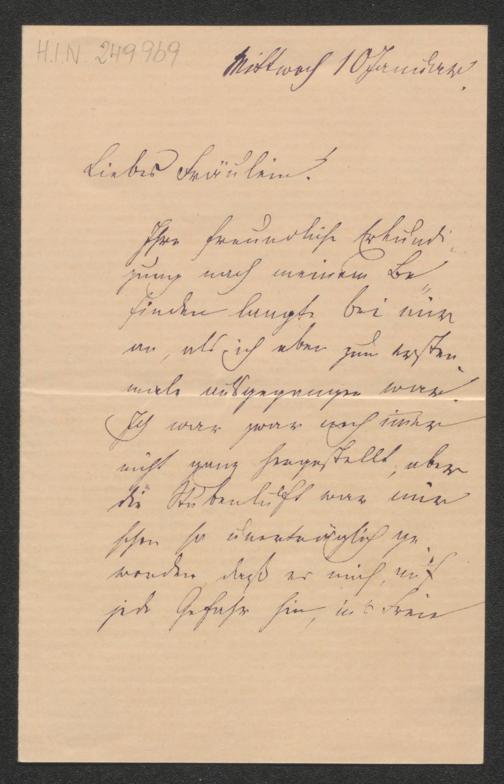 H.I.N. 249969
Mittwoch 10 Januar.
Liebes Fräulein!
Ihre freundliche Erkundi-
gung nach meinem Be-
finden langte bei mir
an, als ich eben zum ersten
male ausgegangen war.
Ich war zwar noch immer
nicht ganz hergestellt, aber
die Stubenluft war mir
schon so unerträglich ge-
worden, daß es mich, auf
jede Gefahr hin, in's Freie